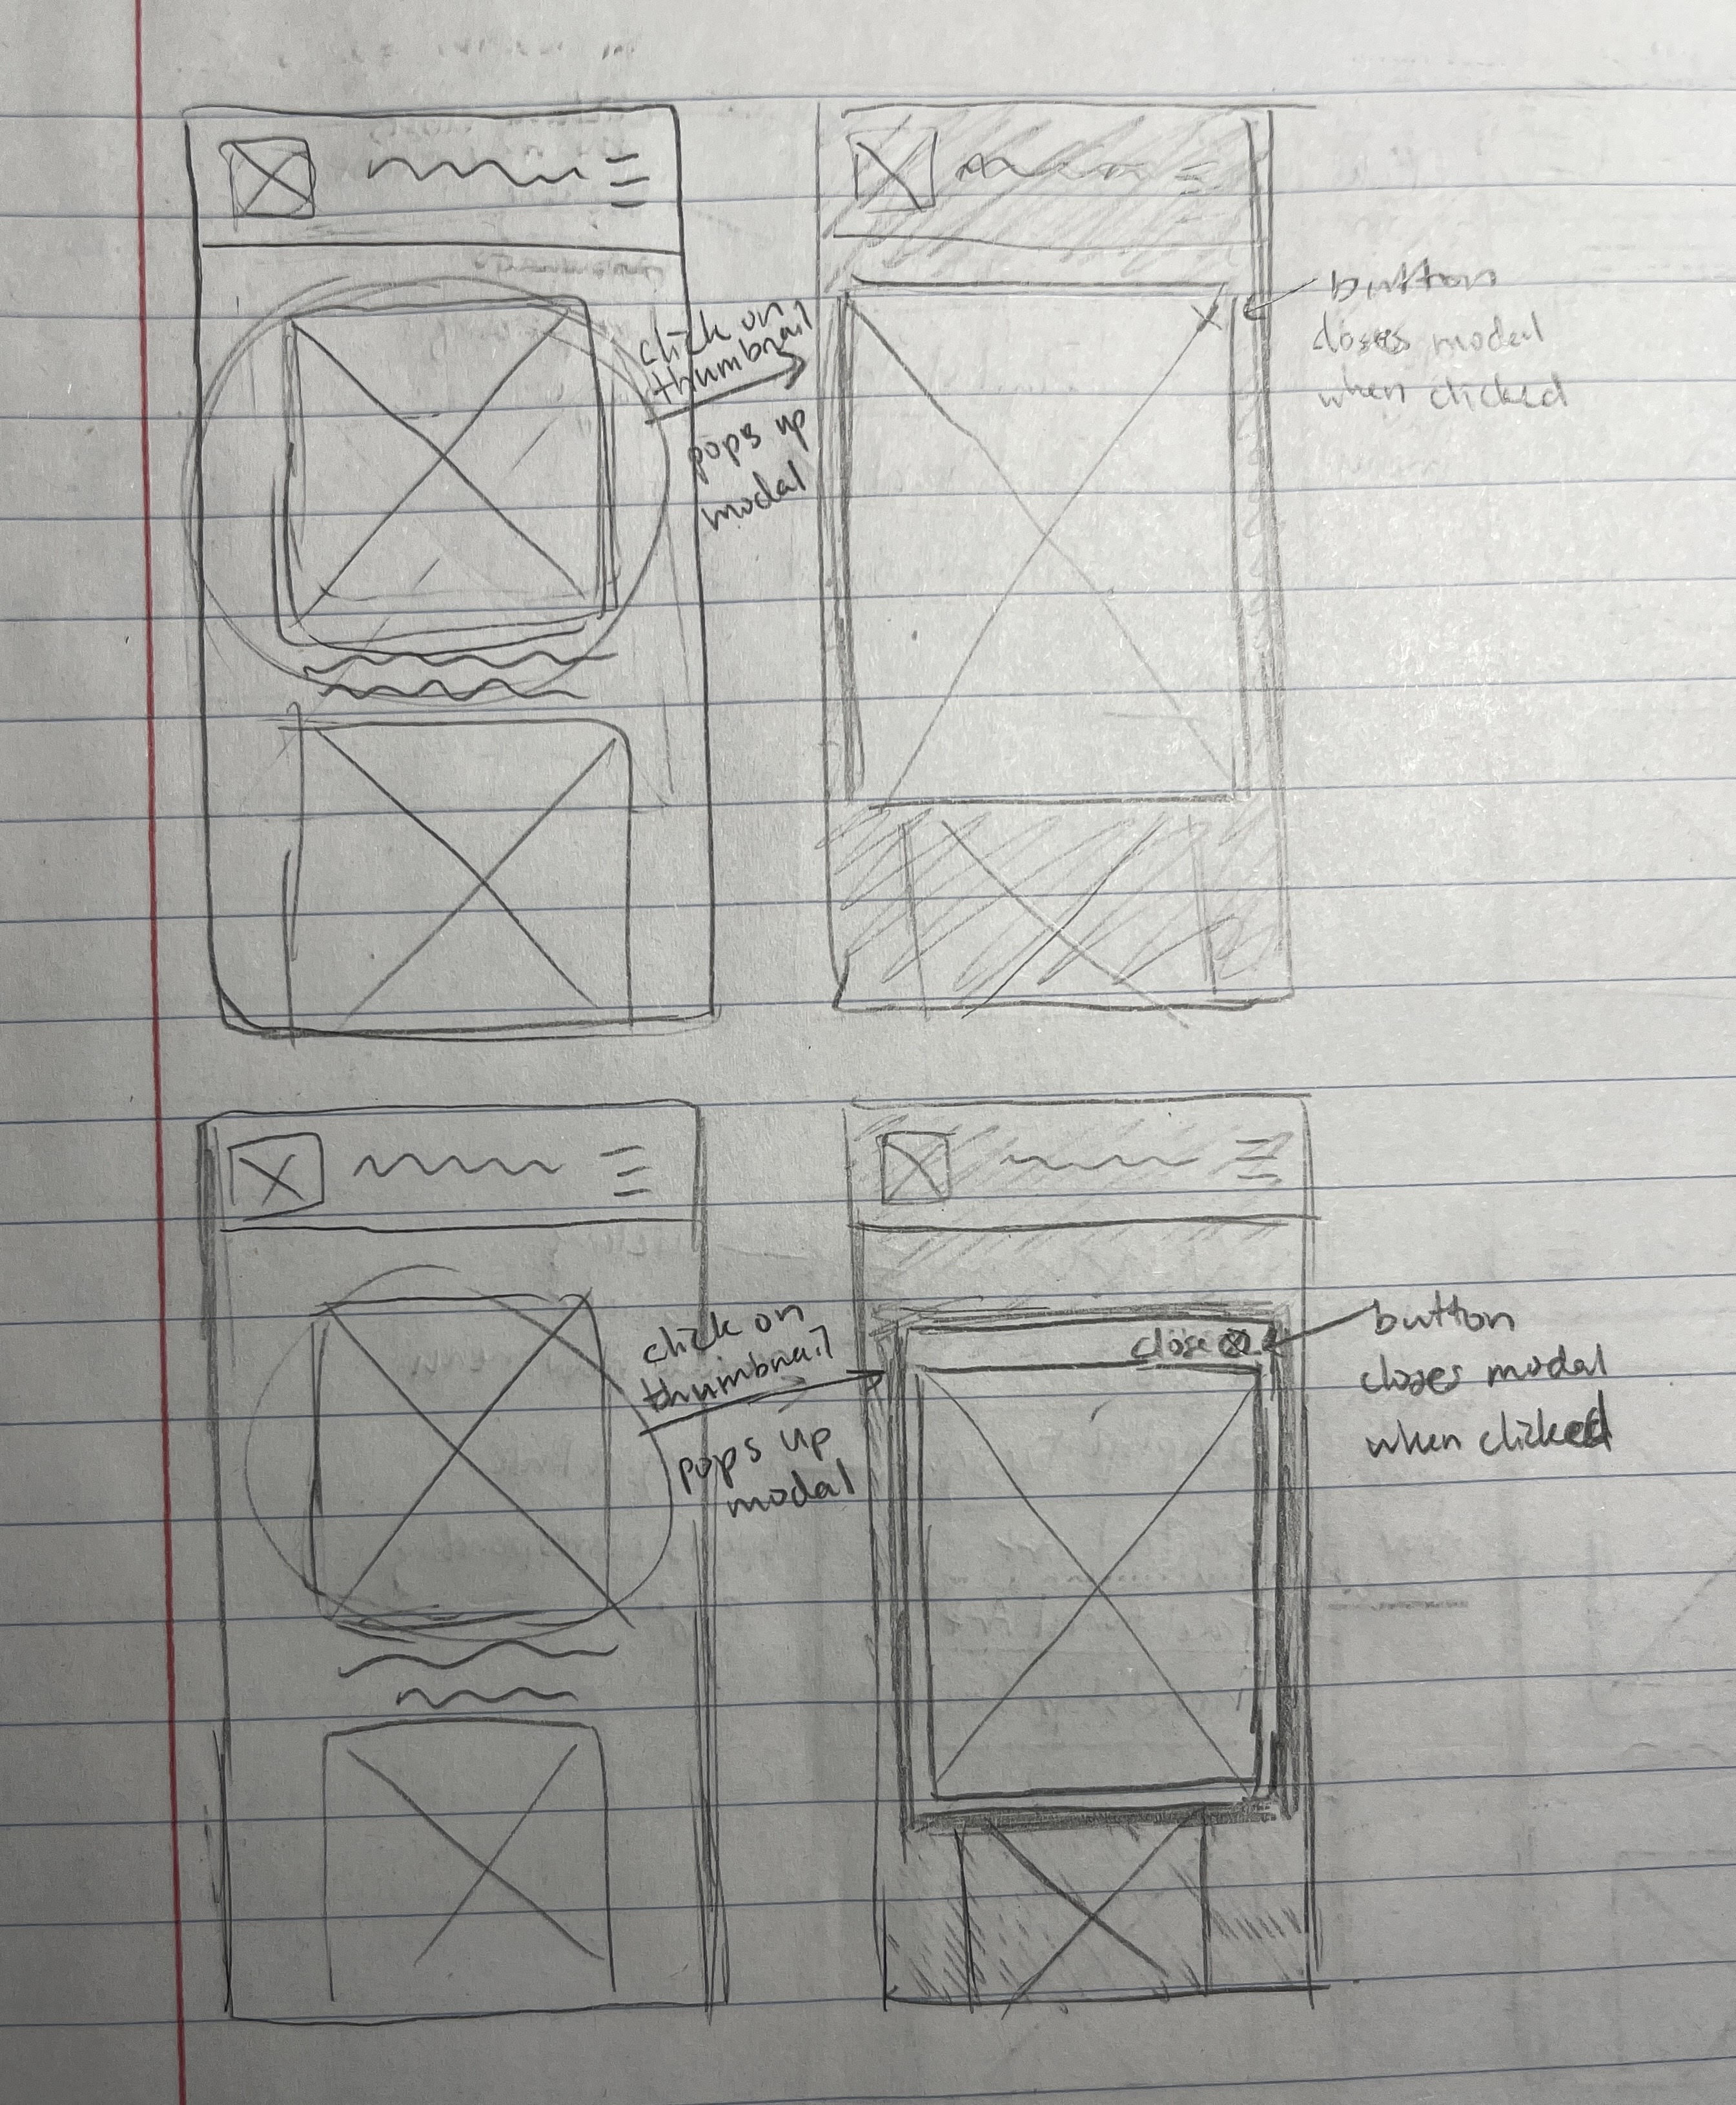 click on
thumbnail
pops up
modal
button
closes modal
when clicked
click on
thumbnail
pops up
modal
close
button
closes modal
when clicked